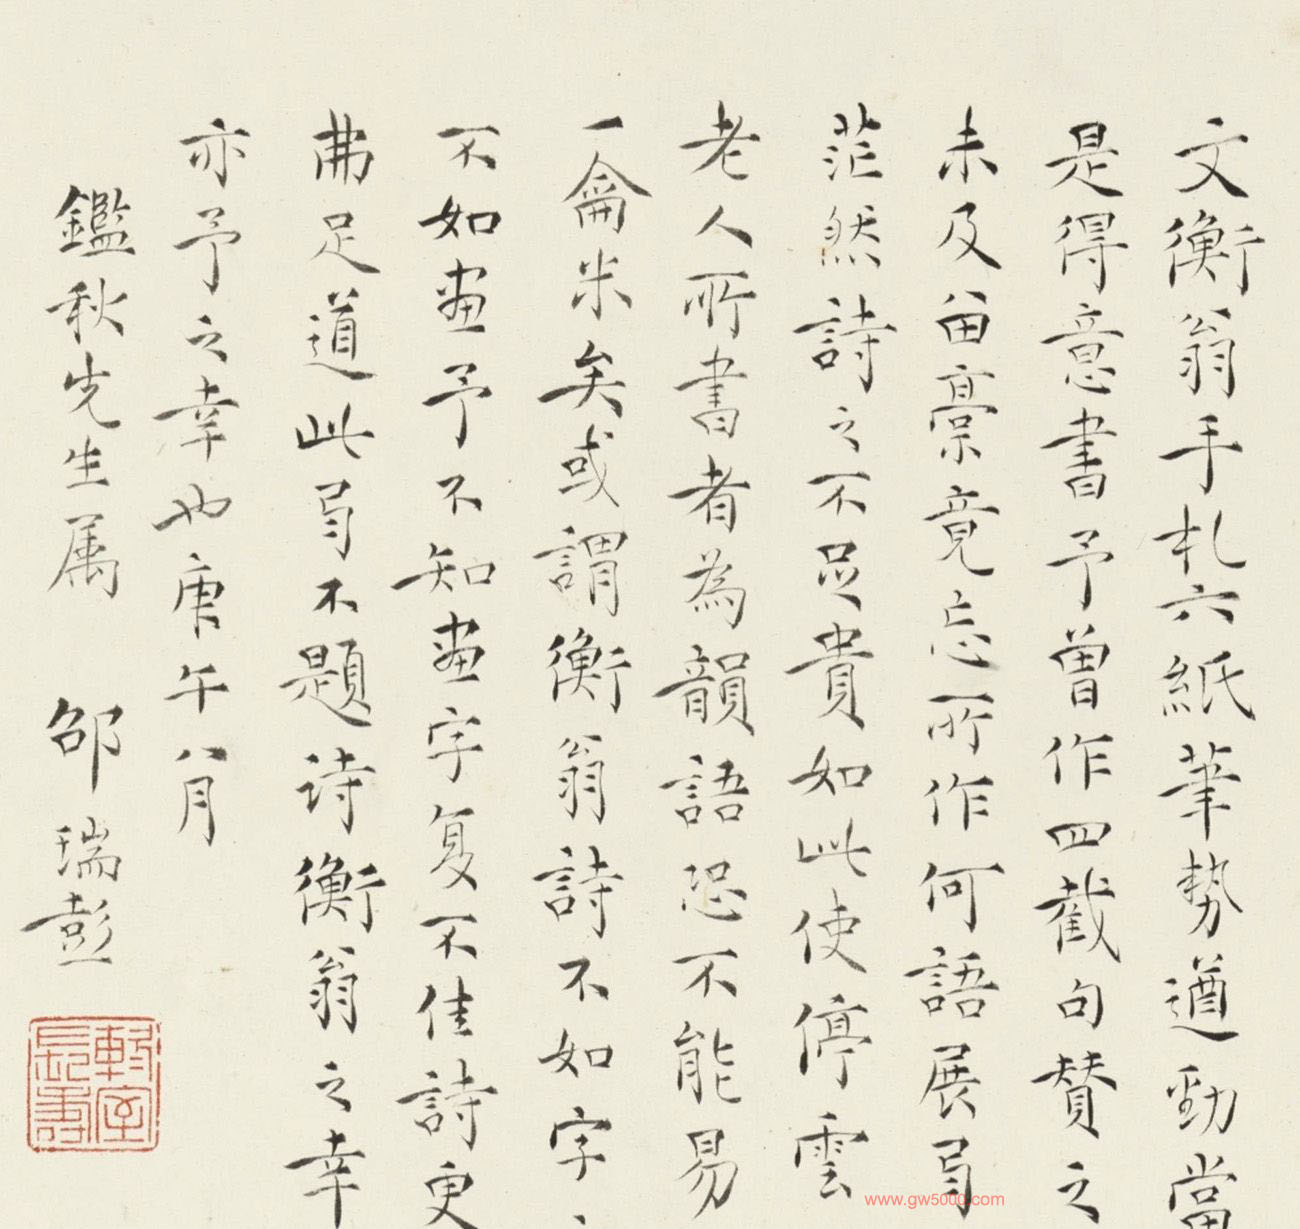 文衡翁手札六紙筆勢遒勁當
是得意書予曾作四截句贊之
未及畱稾竟忘所作何語展卷
茫然詩之不足貴如此使停雲
老人所書者為韻語恐不能易
一龠米矣或謂衡翁詩不如字、
不如畫予不知畫字复不佳詩更
弗足道此卷不題诗衡翁之幸
亦予之幸也庚午八月
鑑秋先生属 邵瑞彭
室長壽
www.gw5000.com